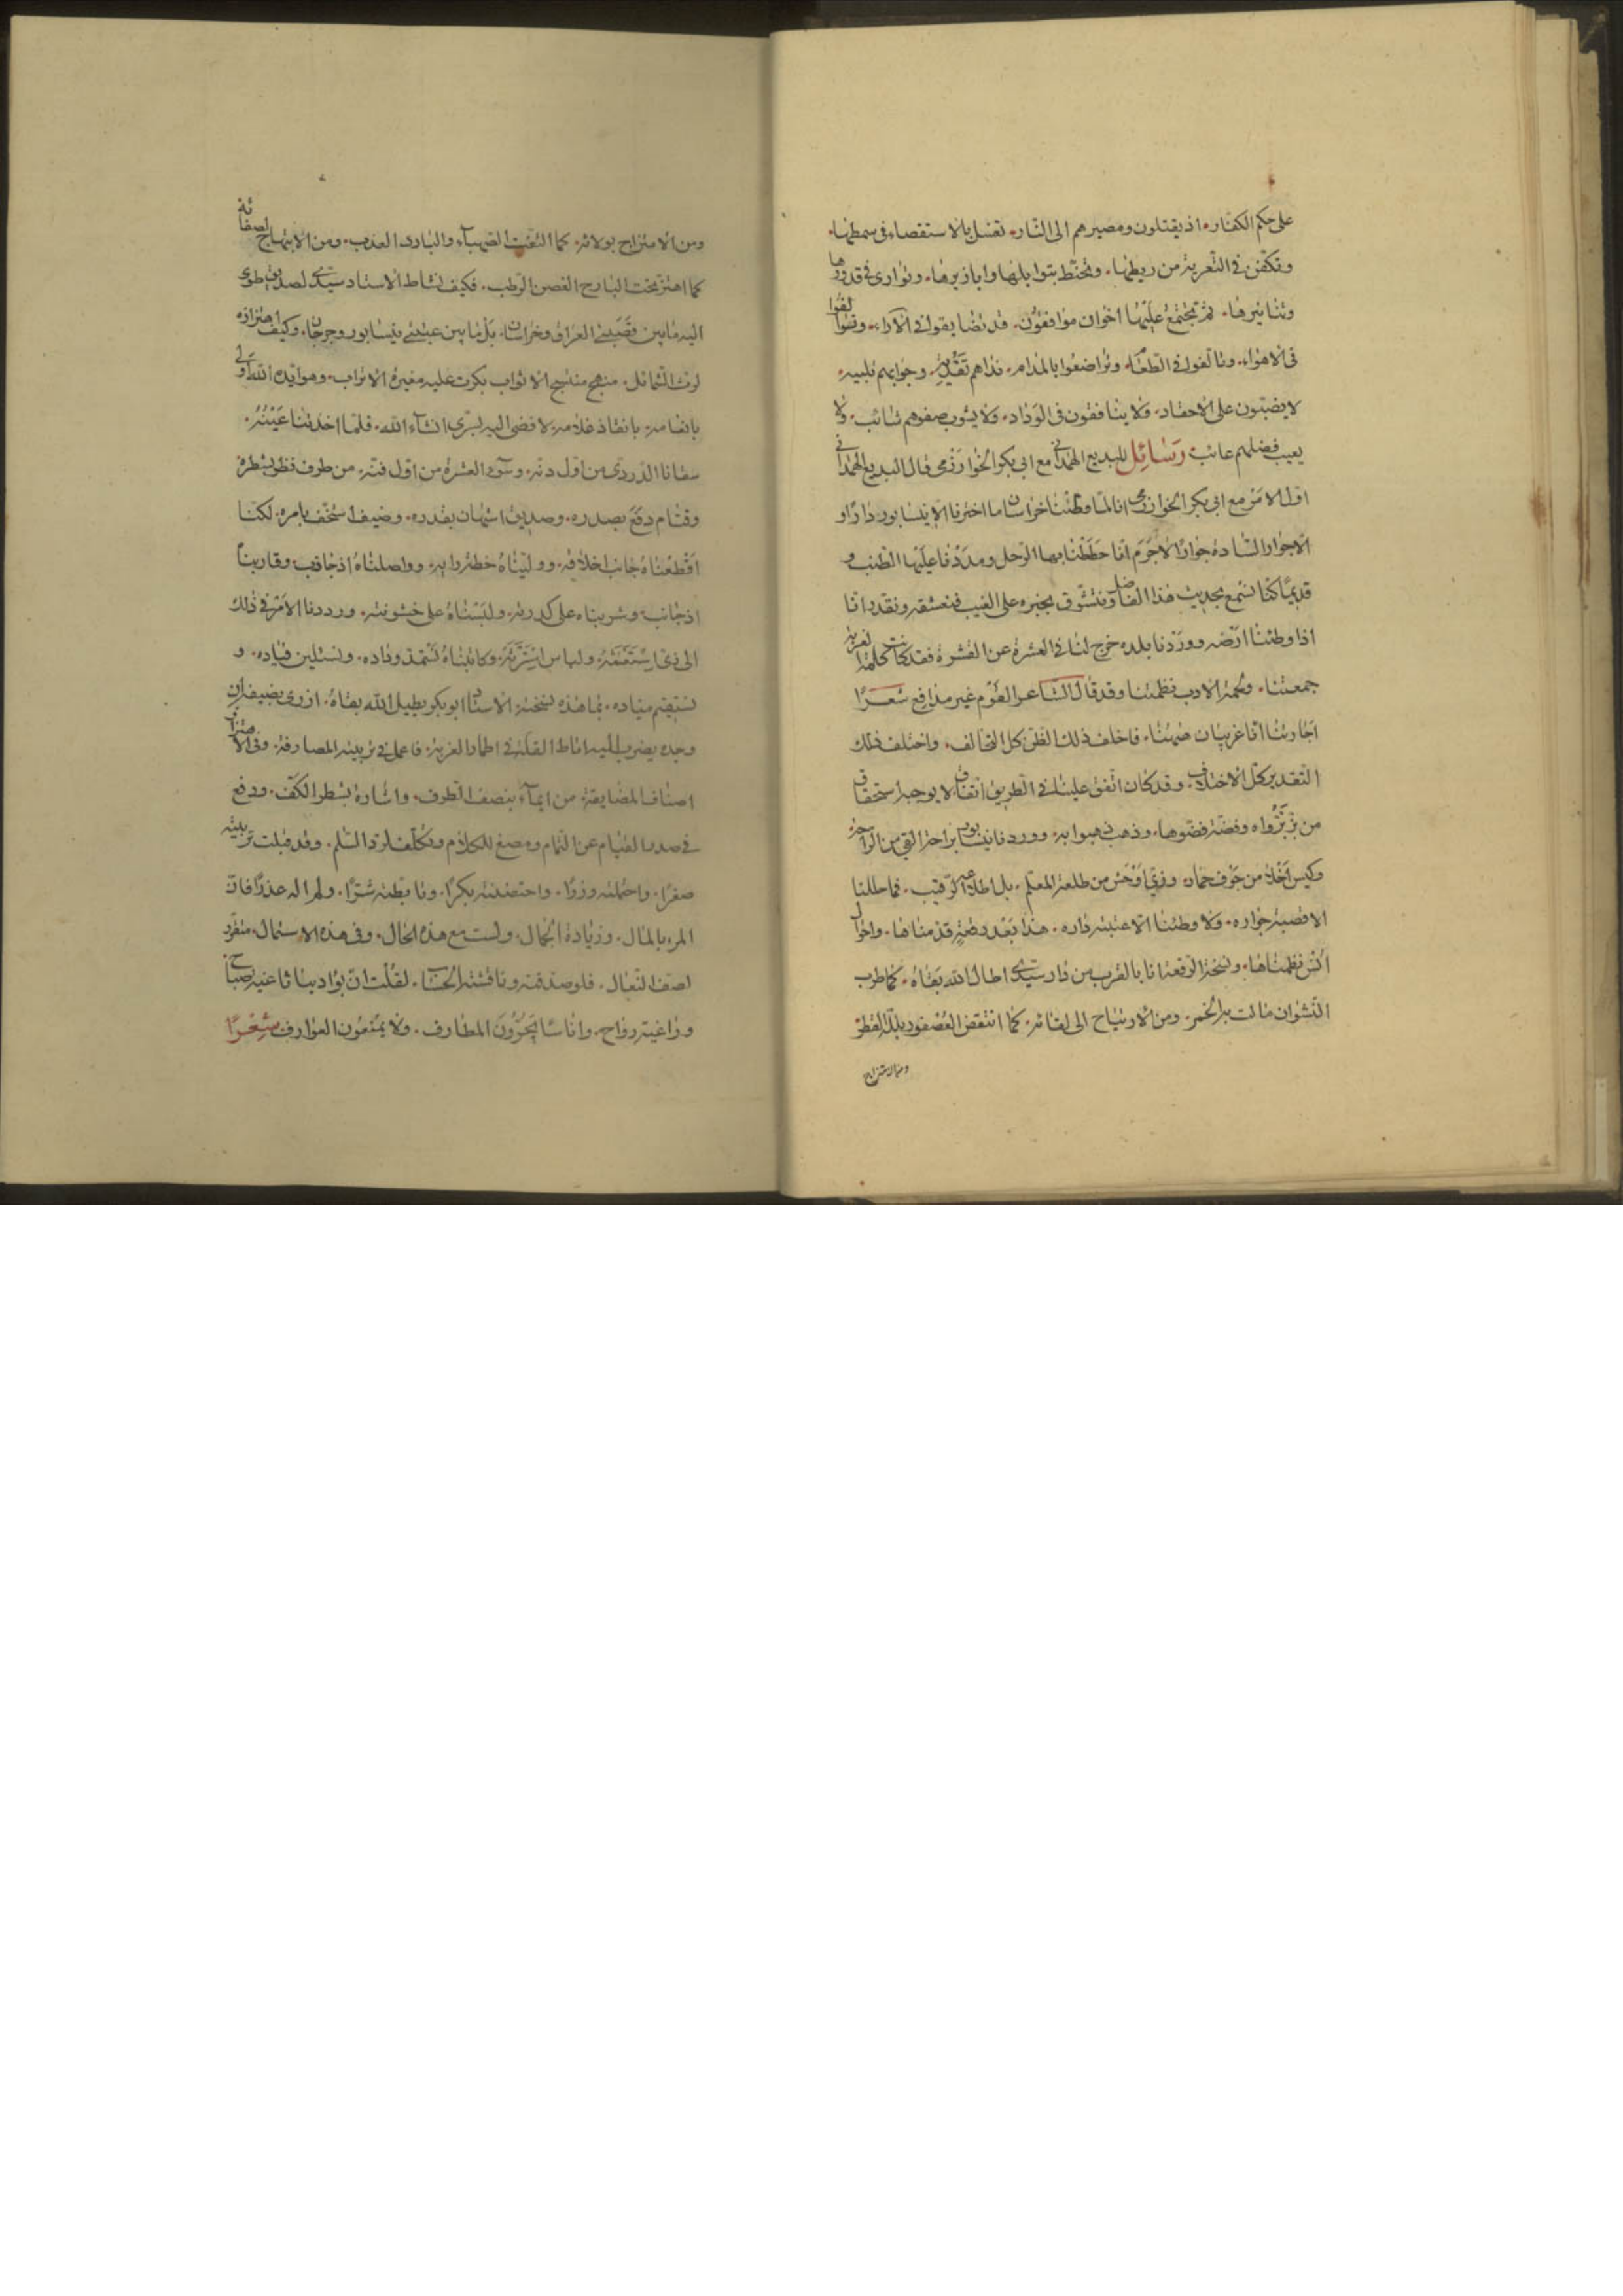 على حكم الكفار، اذ يقتلون ومصيرهم الى النار، تغسل بالاستقصاء فى سمطها،
وتكفن فى التعرية من ريطها، وتحنط بتوابلها وابازيرها، وتوارى فى قدورها
وتنانيرها، ثم يجتمع عليها اخوان موافقون، قد تضايقوا فى الآراء، واتفقوا
فى الاهواء، وتالفوا فى الطعام، وتراضعوا بالمدام، نداهم تفدية، وجوابهم تلبية،
لا يضبون على الاحقاد، ولا ينافقون فى الوداد، ولا يشوب صفوهم شائب، ولا
يعيب فضلهم عائب، رسائل للبديع الهمدانى مع ابى بكر الخوارزمى قال البديع الهمدانى
اول الامر مع ابى بكر الخوارزمى انا لما وطئنا خراسان ما اخترنا الا نيسابور دارا و
الا جوار السادة جوارا لا جرم انا حططنا بها الرحل ومددنا عليها الطنب و
قديما كنا نسمع بحديث هذا الفاضل ونتشوق بخبره على الغيب فنعشقه ونقدر انا
اذا وطئنا ارضه ووردنا بلده خرج لنا فى العشرة عن القشرة فقد كانت كلمة الغربة
جمعتنا، ولحمة الادب نظمتنا وقد قال الشاعر القوم غير مدافع شعرا
اجارتنا انا غريبان هيهنا، فاخلف ذلك الظن كل الخالف، واختلف ذلك
التقدير كل الاختلاف، وقد كان اتفق علينا فى الطريق اتفاق لا يوجبه استحقاق
من بزة بزوها وفضة فضوها، وذهب ذهبوا به، ووردنا نيسابور براحة انقى من الراحة
وكيس اخلا من جوف حمار، وزى اوحش من طلعة المعلم، بل اطلاعة الرقيب، فما حللنا
الا قصبة جواره، ولا وطئنا الا عتبة داره، هذا بعد رقعة قدمناها، واحوال
انس نظمناها، ونسخة الرقعة انا بالقرب من دار سيدى اطال الله بقاه، كما طرب
النشوان مالت به الخمر، ومن الارتياح الى لقائه، كما انتفض العصفور بلله القطر
ومن الامتزاج
ومن الامتزاج بولائه، كما التقت الصهباء والبارد العذب، ومن الابتهاج لصفائه
كما اهتز تحت البارح الغصن الرطب، فكيف نشاط الاستاد سيدى لصديق طوى
اليه ما بين قصبتى العراق وخراسان، بل ما بين عتبتى نيسابور وجرجان، وكيف اهتزازه
لرث الشمائل، منهج الاثواب بكرت عليه مغيرة الاعراب، وهو ايده الله اولى
بانعامه، بانفاذ غلامه، لافضى اليه بسرى انشاء الله، فلما اخذتنا عينه،
سقانا الدردى من اول دنه، وسوء العشرة من اول فنه، من طرف نظر بشطره
وقيام دفع بصدره، وصديق استهان بقدره، وضيف استخف بامره، لكنا
اقطعناه جانب اخلاقه، ووليناه خطة رايه، وواصلناه اذ جانب، وقاربناه
اذ جانب، وشربناه على كدرته، ولبسناه على خشونته، ورددنا الامر فى ذلك
الى زى استغثه، ولباس استرثه، وكاتبناه نستمد وداده، ونستلين قياده، و
نستقيم مناده، بما هذه نسخته الاستاد ابو بكر يطيل الله بقاه، ازرى بضيفه ان
وجده يضرب اليه اباط القلة فى اطمار الغربة، فاعمل فى ترتيبه المصارفة، وفى الاهتزاز له
اصناف المضايقة، من ايماء بنصف الطرف، واشارة بشطر الكف، ودفع
فى صدر القيام عن التمام ومضغ للكلام وتكلف لرد السلم، وقد قبلت تربيته
صعرا، واحتملته وزرا، واحتضنته نكرا، وتابطته شرا، ولم اله عذرا فان
المرء بالمال، وزيادة الجمال، ولست مع هذه الحال، وفى هذه الاسمال، متفرد
لصف النعال، فلو صدقته وناقشته الحساب، لقلت ان بوادينا ثاغية صباح
وراغية رواح، واناسا يجرون المطارف، ولا يمنعون العوارف شعرا